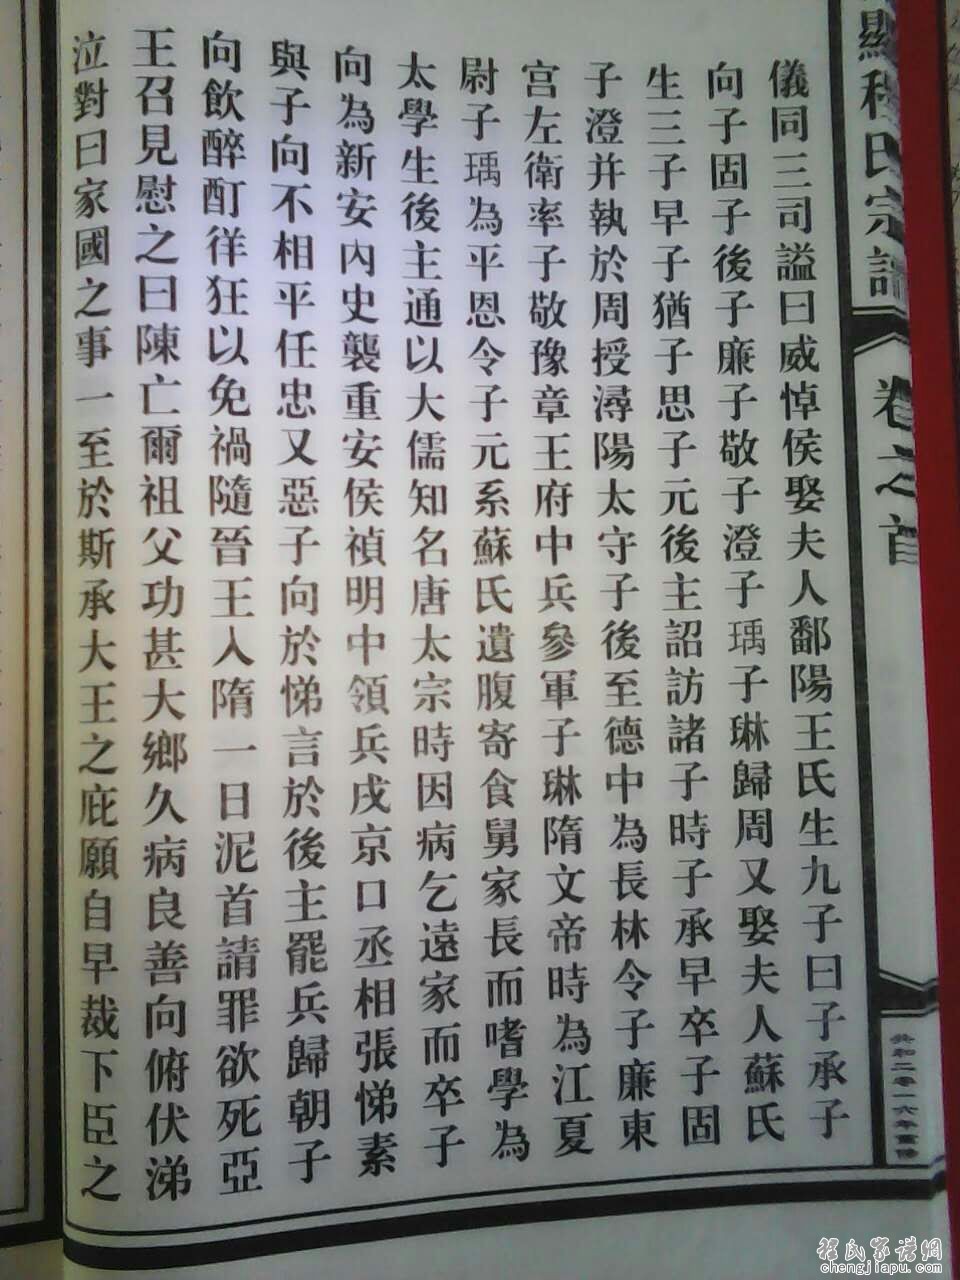 顯程氏宗譜
卷之首
共和二零一六年重修
儀同三司謚曰威悼侯娶夫人鄱陽王氏生九子曰子承子
向子固子後子廉子敬子澄子瑀子琳歸周又娶夫人蘇氏
生三子早子猶子思子元後主詔訪諸子時子承早卒子固
子澄并執於周授潯陽太守子後至德中為長林令子廉東
宮左衛率子敬豫章王府中兵參軍子琳隋文帝時為江夏
尉子瑀為平恩令子元系蘇氏遺腹寄食舅家長而嗜學為
太學生後主通以大儒知名唐太宗時因病乞遠家而卒子
向為新安內史襲重安侯禎明中領兵戌京口丞相張悌素
與子向不相平任忠又惡子向於悌言於後主罷兵歸朝子
向飲醉酊徉狂以免禍隨晉王入隋一日泥首請罪欲死亞
王召見慰之曰陳亡爾祖父功甚大鄉久病良善向俯伏涕
泣對曰家國之事一至於斯承大王之庇願自早裁下臣之
程氏家譜網
chengjiapu.com